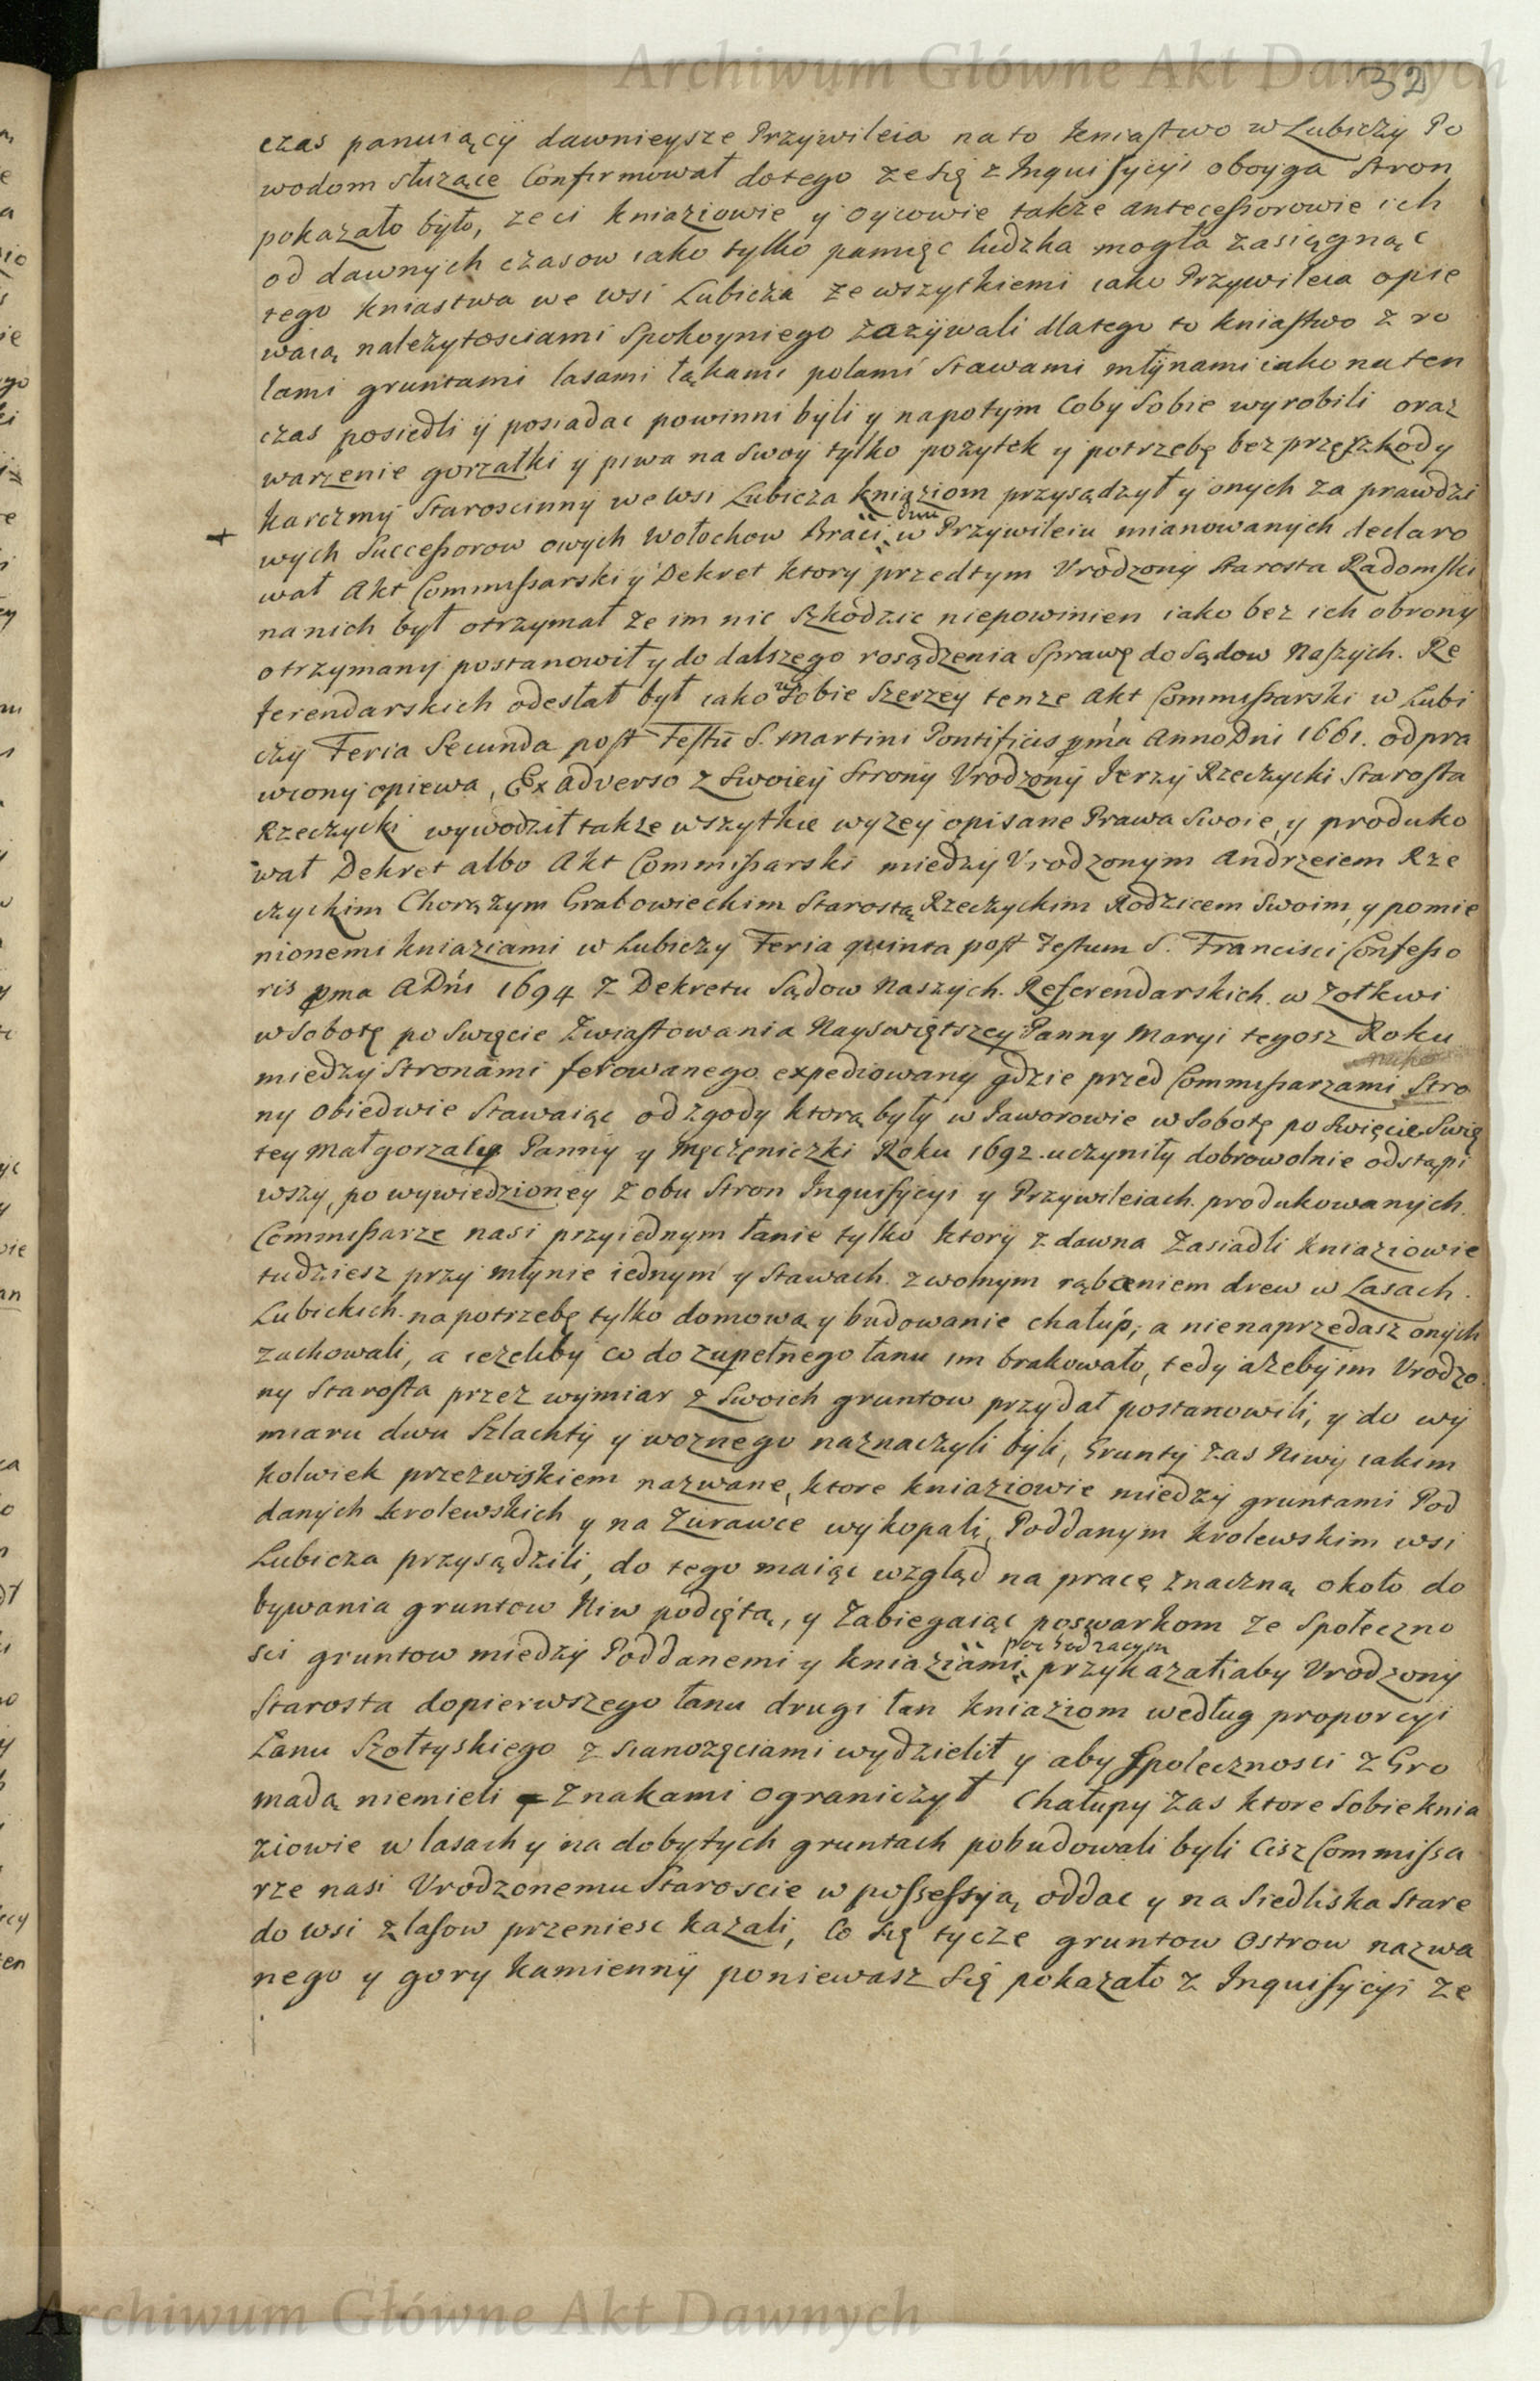 Archiwum Główne Akt Dawnych
32
czas panuiący dawnieysze Przywileia na to kniastwo w Lubiczy Po
wodom służące Confirmował dotego ze się z Inquisycyi oboyga Stron
pokazało było, ze ci kniaziowie y oycowie także antecessorowie ich
od dawnych czasow iako tylko pamięc ludzka mogła zasięgnąc
tego kniastwa we wsi Lubicza ze wszytkiemi iako Przywileia opie
waią należytosciami Spokoyniego zazywali dlatego to kniastwo z ro
lami gruntami lasami łąkami polami Stawami młynami iako na ten
czas posiedli y posiadac powinni byli y napotym Coby Sobie wyrobili oraz
warzenie gorzałki y piwa na Swoy tylko pozytek y potrzebę bez przęszkody
karczmy Staroscinny we wsi Lubicza kniaziom przysądzył y onych za prawdzi
+
dwu
wych Successorow owych Wołochow Braci w Przywileiu mianowanych declaro
wał Akt Commissarski y Dekret ktory przedtym Vrodzony Starosta Radomski
na nich był otrzymał ze im nic Szkodzic niepowinien iako bez ich obrony
otrzymany postanowił y do dalszego rosądzenia Sprawę do Sądow Naszych Re
ferendarskich odesłał był iako w Sobie Szerzey tenze Akt Commissarski w Lubi
czy Feria Secunda post Festũ S. Martini Pontificis pma Anno Dni 1661. odpra
wiony opiewa, Ex adverso z Swoiey Strony Vrodzony Jerzy Rzeczycki Starosta
Rzeczycki wywodził także wszytkie wyzey opisane Prawa Swoie, y produko
wał Dekret albo Akt Commissarski miedzy Vrodzonym Andrzeiem Rze
czyckim Chorązym Grabowieckim Starostą Rzeczyckim Rodzicem Swoim, y pomie
nionemi kniaziami w Lubiczy Feria quinta post Festum S. Francisci Confesso
ris pma ADni 1694 z Dekretu Sądow Naszych Referendarskich w Zołkwi
w Sobotę po Swięcie Zwiastowania Nayswiętszey Panny Maryi tegosz Roku
miedzy Stronami ferowanego expediowany gdzie przed Commissarzami Stro
ny obiedwie Stawaiąc od zgody ktorą były w Jaworowie w Sobotę po Swięcie Swię
tey Małgorzaty Panny y Męczęniczki Roku 1692. uczyniły dobrowolnie odstąpi
wszy, po wywiedzioney z obu Stron Inquisycyi y Przywileiach produkowanych
Commissarze nasi przyiednym łanie tylko ktory z dawna Zasiadli kniaziowie
tudziesz przy młynie iednym y Stawach z wonym rąbaniem drew w Lasach
Lubickich na potrzebę tylko domową y budowanie chałup, a nienaprzedasz onych
zachowali, a iezeliby co do zupełnego łanu im brakowało, tedy azeby im Vrodzo
ny Starosta przez wymiar z Swoich gruntow przydał postanowili, y do wy
miaru dwu Szlachty y woznego naznaczyli byli, Grunty zas Niwy iakim
kolwiek przezwiskiem nazwane, ktore kniaziowie miedzy gruntami Pod
danych krolewskich y na Zurawce wykopali, Poddanym krolewskim wsi
Lubicza przysądzili, do tego maiąc wzgląd na pracę znaczną około do
bywania gruntow Niw podiętą, y Zabiegaiąc poswarkom ze Społeczno
pochodzacym
sci gruntow miedzy Poddanemi y kniaziami przykazali aby Vrodzony
Starosta dopierwszego łanu drugi łan kniaziom według proporcyi
Łanu Szołtyskiego z Sianozęciami wydzielił y aby Społecznosci z Gro
madą niemieli Znakami ograniczył Chałupy zas ktore Sobie knia
ziowie w lasach y na dobytych gruntach pobudowali byli Cisz Commissa
rze nasi Vrodzonemu Staroscie w possessyą oddac y na Siedliska Stare
do wsi z lasow przeniesc kazali, Co się tycze gruntow Ostrow nazwa
nego y gory kamienny poniewasz się pokazało z Inquisycyi ze
Archiwum Główne Akt Dawnych